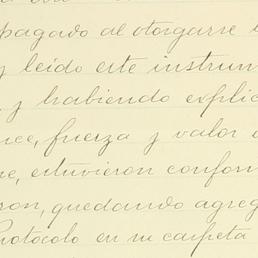 pagado al otorgarse
y leido este instrum
y habiendo explic
nce, fuerza y valor
ne, estuvieron confor
ron, quedando agreg
Protocolo en su carpeta